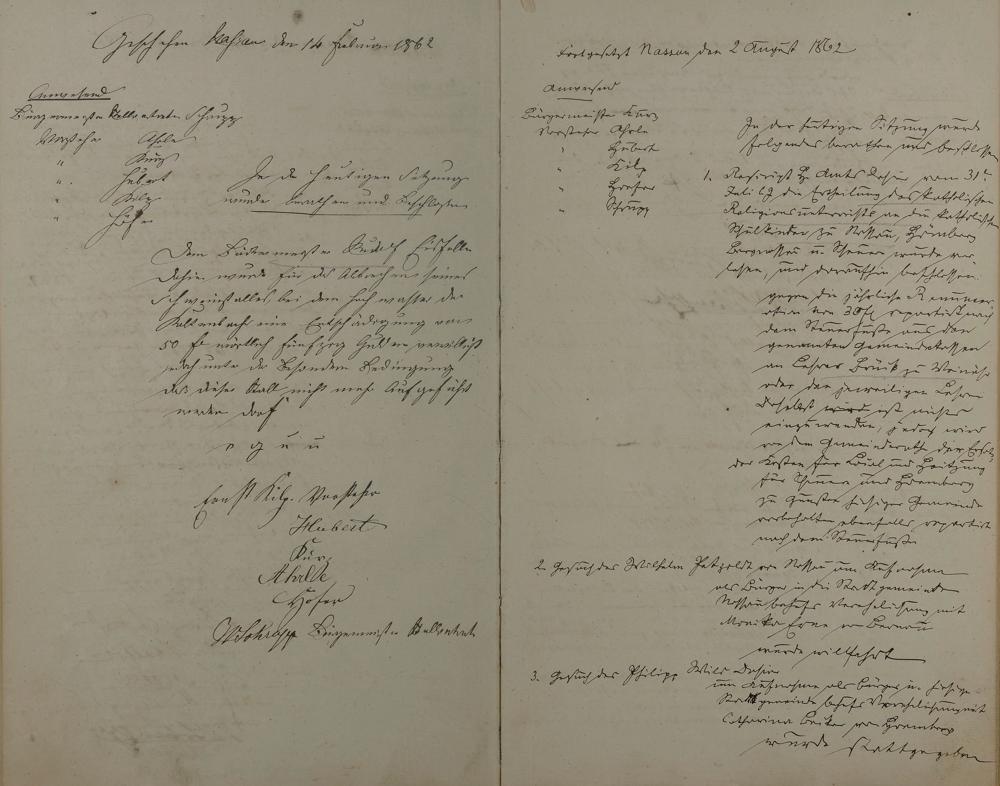 Geschehen Nassau den 14 Februar 1862
Anwesend
Bürgermeister Stellvertreter Schrupp
Vorsteher Ahrle
" Kurz
" Hubert
" Kilp
" Höfer
In der heutigen Sitzung
wurde berathen und beschlossen
Dem Bürgermeister Rudolf
Dahier wurde für das Abbrechen seines
Schweinstalles bei dem Hochwasser der
Kaltenbach eine Entschädigung von
50 fl wörtlich fünfzig Gulden verwilligt
jedoch unter der besondern Bedingung
das dieser Stall nicht mehr aufgeführt
werden darf
v g u u
Ernst Kilp. Vorsteher
Hubert
Kurz
Ahrle
Höfer
Schrupp Bürgermeister Stellvertreter
Fortgesetzt Nassau den 2 August 1862
Anwesend
Bürgermeister Kurz
Vorsteher Ahrle
" Hubert
" Kilp
" Höfer
" Schrupp
In der heutigen Sitzung wurde
folgendes berathen und beschlossen
1. Rescript H. Amts Dahier vom 31
Juli die Ertheilung des katholischen
Religionsunterrichts an die katholischen
Schulkinder zu Nassau, Hömberg
Bergnassau u. Scheuern wurde ver
lesen, und daraufhin beschlossen
gegen die jährliche Remuner
ation von 30 fl repartirt nach
dem Steuerfuße aus den
genannten Gemeindekassen
an Lehrer Brück zu Weinähr
oder den jeweiligen Lehrer
daselbst wird ist nichts
einzuwenden, jedoch wird
von dem Gemeinderath der Ersatz
der Kosten für Local und Heitzung
für Scheuern und Hömberg
zu Gunsten hiesiger Gemeinde
vorbehalten ebenfalls repartirt
nach dem Steuerfuße
2. Gesuch des Wilhelm Petzoldt von Nassau um Aufnahme
als Bürger in die Stadtgemeinde
Nassau behufs Verehelichung mit
Monika von
wurde willfahrt
3. Gesuch des Philipp Wils Dahier
um Aufnahme als Bürger in hiesige
Stadtgemeinde behufs Verehelichung mit
Catharina von Hömberg
wurde stattgegeben